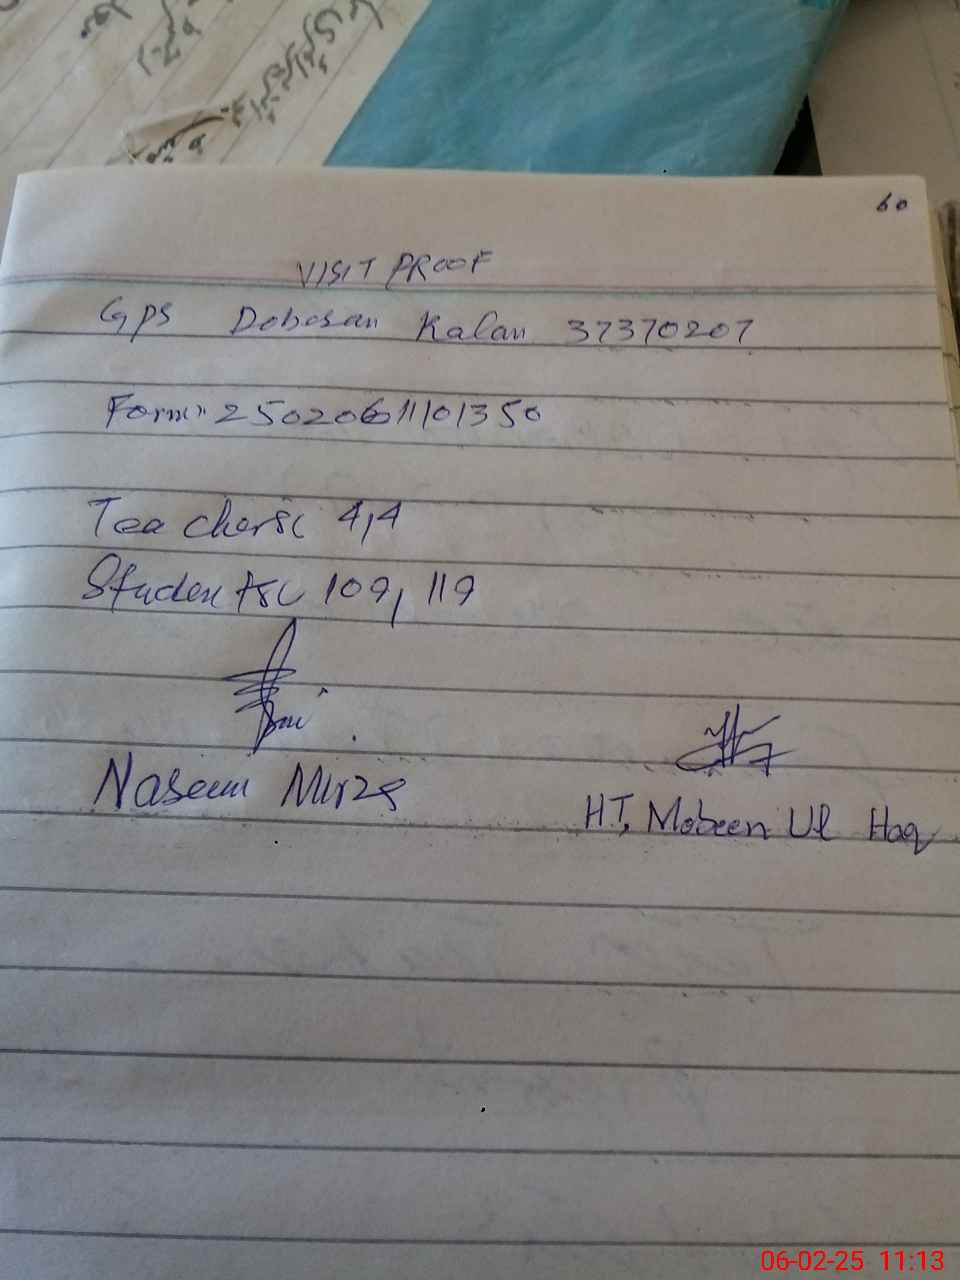 60
VISIT PROOF
GPS Dobosan Kalan 37370207
Form: 25020611101350
Teachers: 4,4
Students: 109, 119
Naseem Mirza
HT, Mobeen Ul Haq
06-02-25 11:13